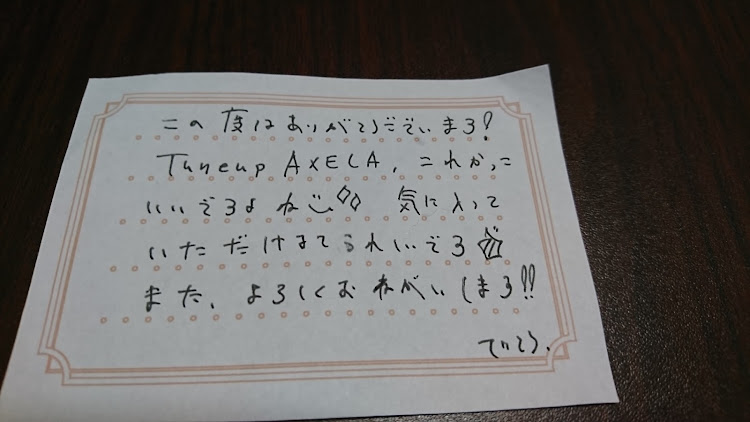 この度はありがとうございます!
Tuneup AXELA、これかっこ
いいですよね 気に入って
いただけまてうれいです
また、よろしくおねがいします!!